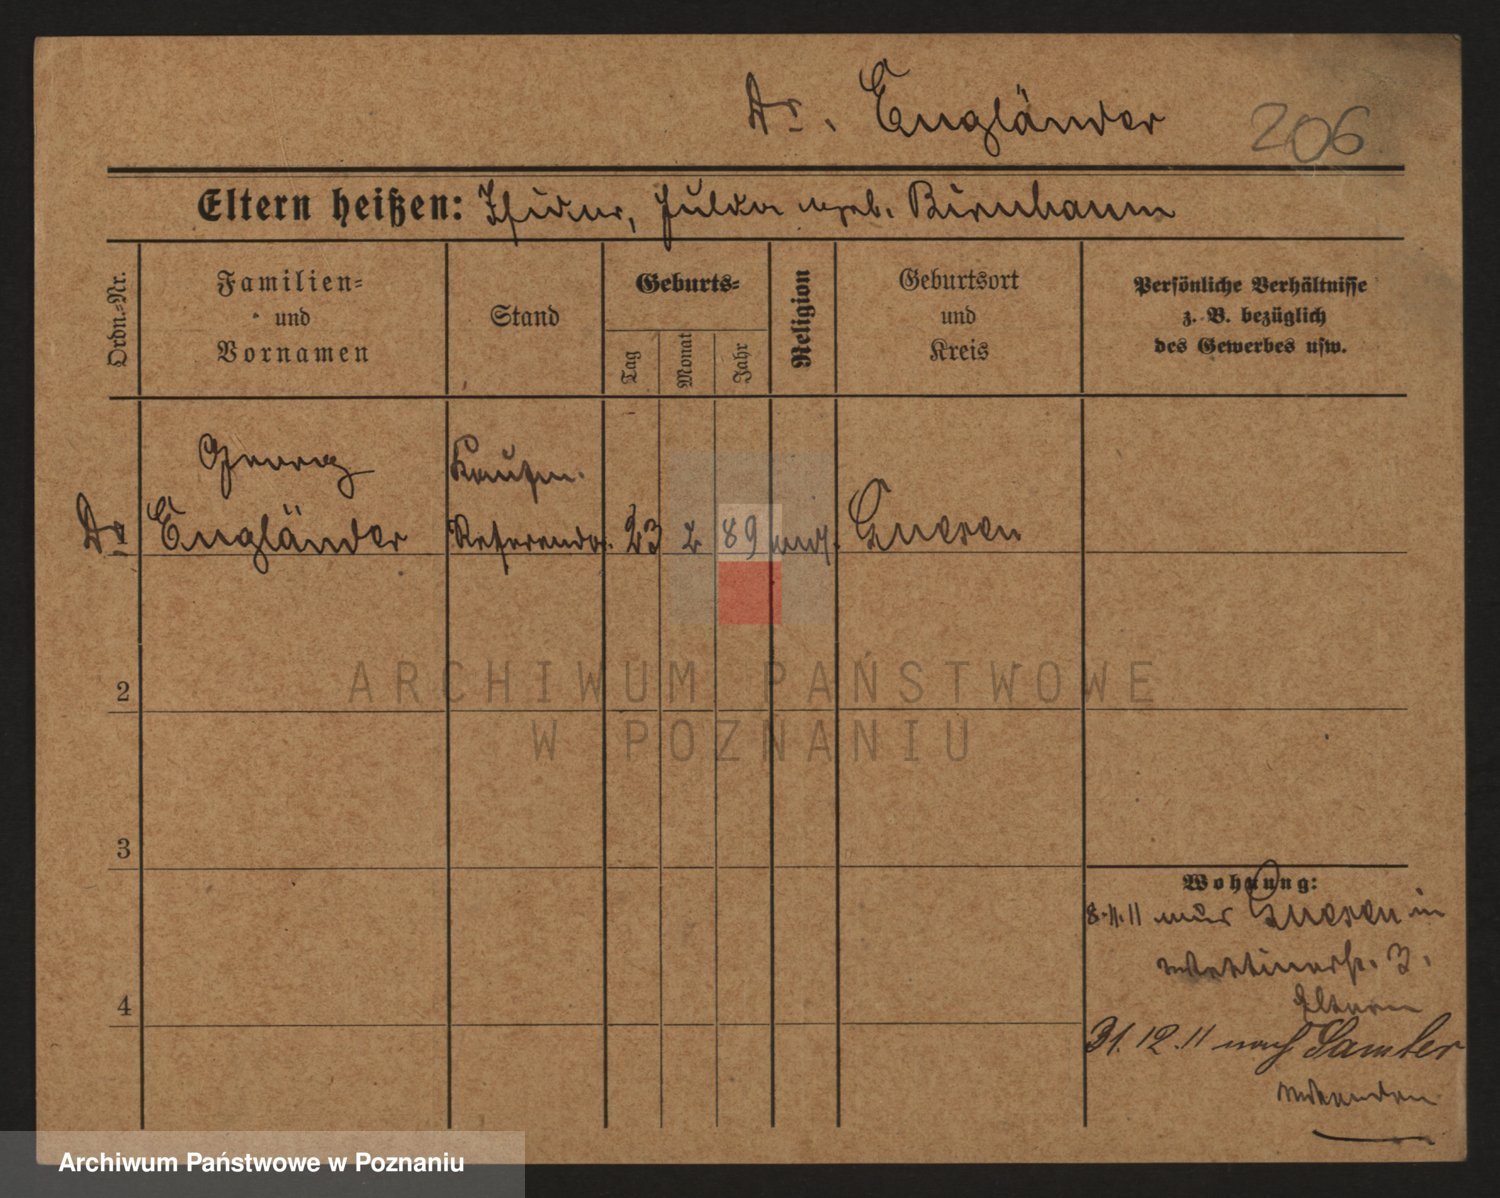 Dr. Engländer 206
Eltern heißen: Isidor, Hulda geb. Birnbaum
Ordn.-Nr.
Familien-
und
Vornamen
Stand
Geburts-
Tag
Monat
Jahr
Religion
Geburtsort
und
Kreis
Persönliche Verhältnisse
z. B. bezüglich
des Gewerbes usw.
Georg
Dr Engländer
Referendar. 23 2 89 Gnesen
2
ARCHIWUM PAŃSTWOWE
W POZNANIU
3
Wohnung:
8.11.11 aus Gnesen in
3.
Eltern
4
31.12.11 nach Samter
Archiwum Państwowe w Poznaniu